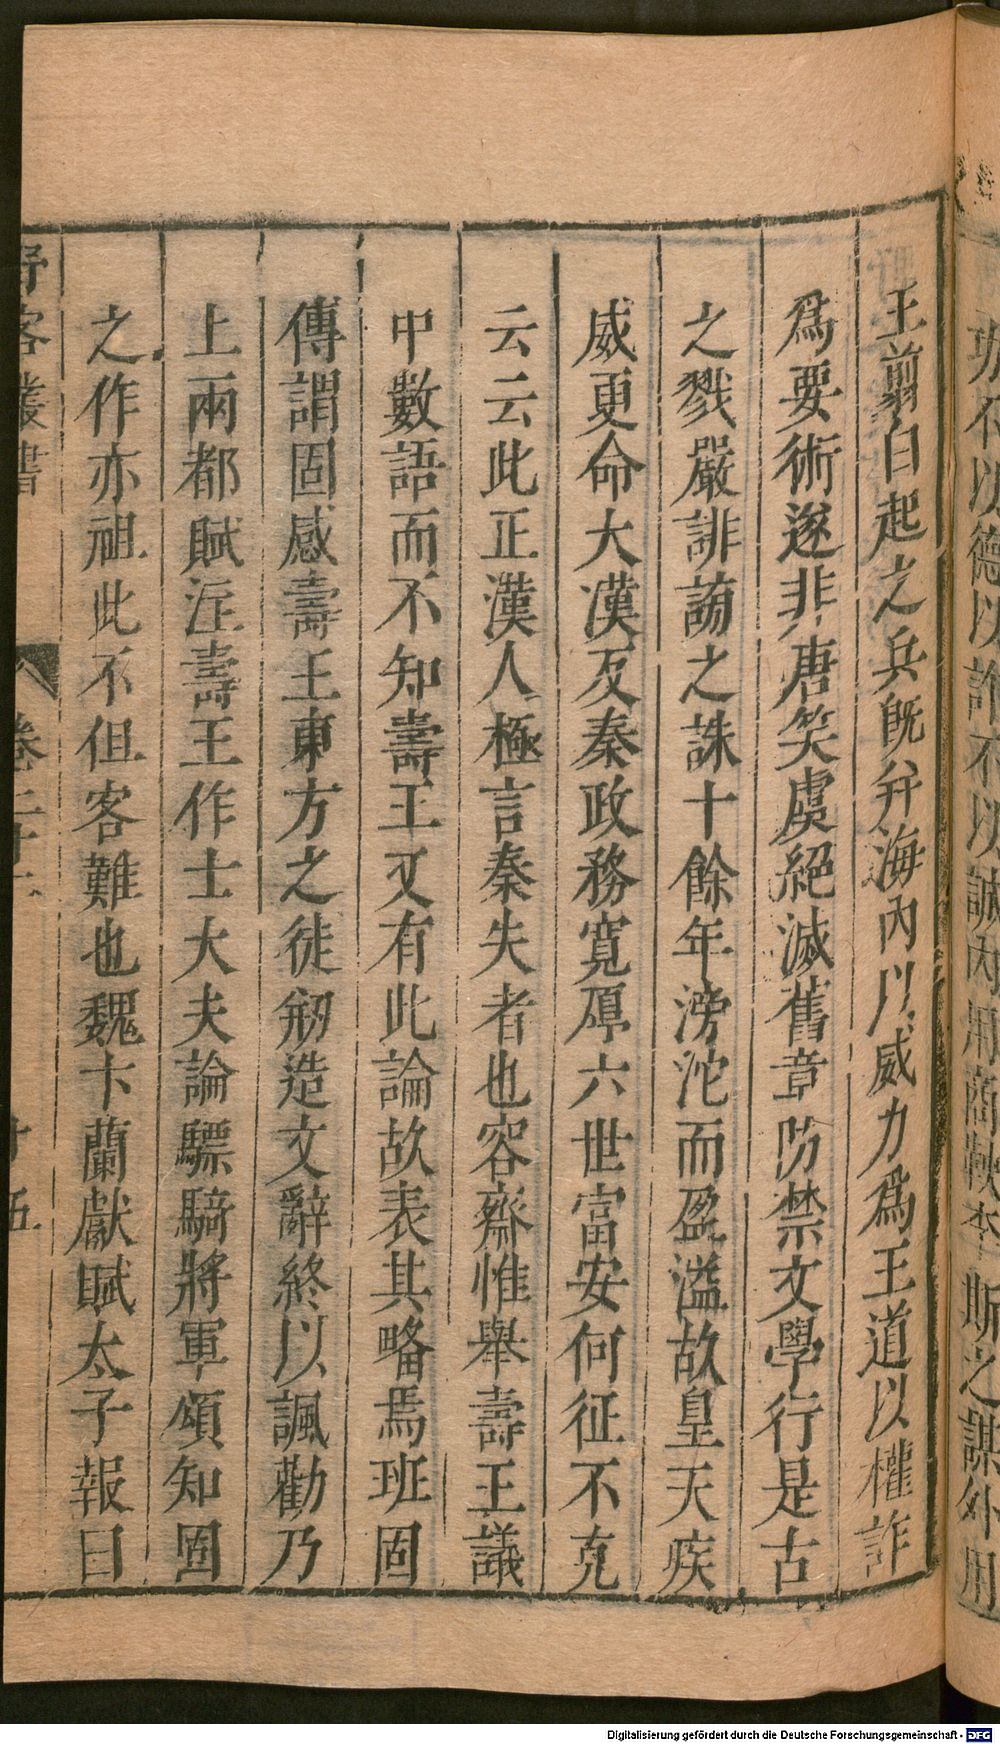 功不以德以詐不以誠內用商鞅李斯之謀外用
王翦白起之兵旣并海內以威力爲王道以權詐
爲要術遂非唐笑虞絕滅舊章防禁文學行是古
之戮嚴誹謗之誅十餘年滂沱而盈溢故皇天疾
威更命大漢反秦政務寬厚六世富安何征不克
云云此正漢人極言秦失者也容齋惟舉壽王議
中數語而不知壽王又有此論故表其略焉班固
傳謂固感壽王東方之徒剏造文辭終以諷勸乃
上兩都賦注壽王作士大夫論驃騎將軍頌知固
之作亦祖此不但客難也魏卞蘭獻賦太子報曰
野客叢書
卷二十二
十五
Digitalisierung gefördert durch die Deutsche Forschungsgemeinschaft - DFG